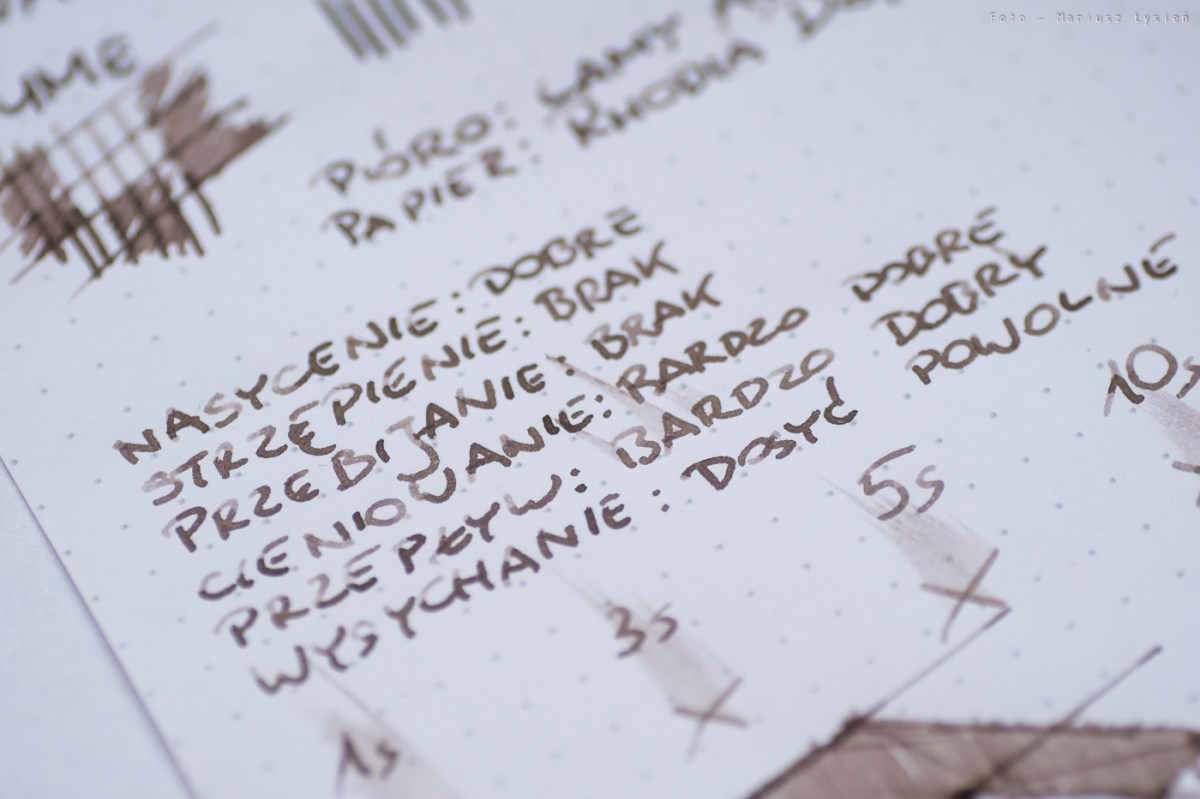 Foto - Mariusz Łysień
PIÓRO: LAMY
PAPIER: RHODIA
NASYCENIE: DOBRE
STRZĘPIENIE: BRAK
PRZEBIJANIE: BRAK
CIENIOWANIE: BARDZO DOBRE
PRZEPŁYW: BARDZO DOBRY
WYSYCHANIE: DOSYĆ POWOLNE
1s 3s 5s 10s